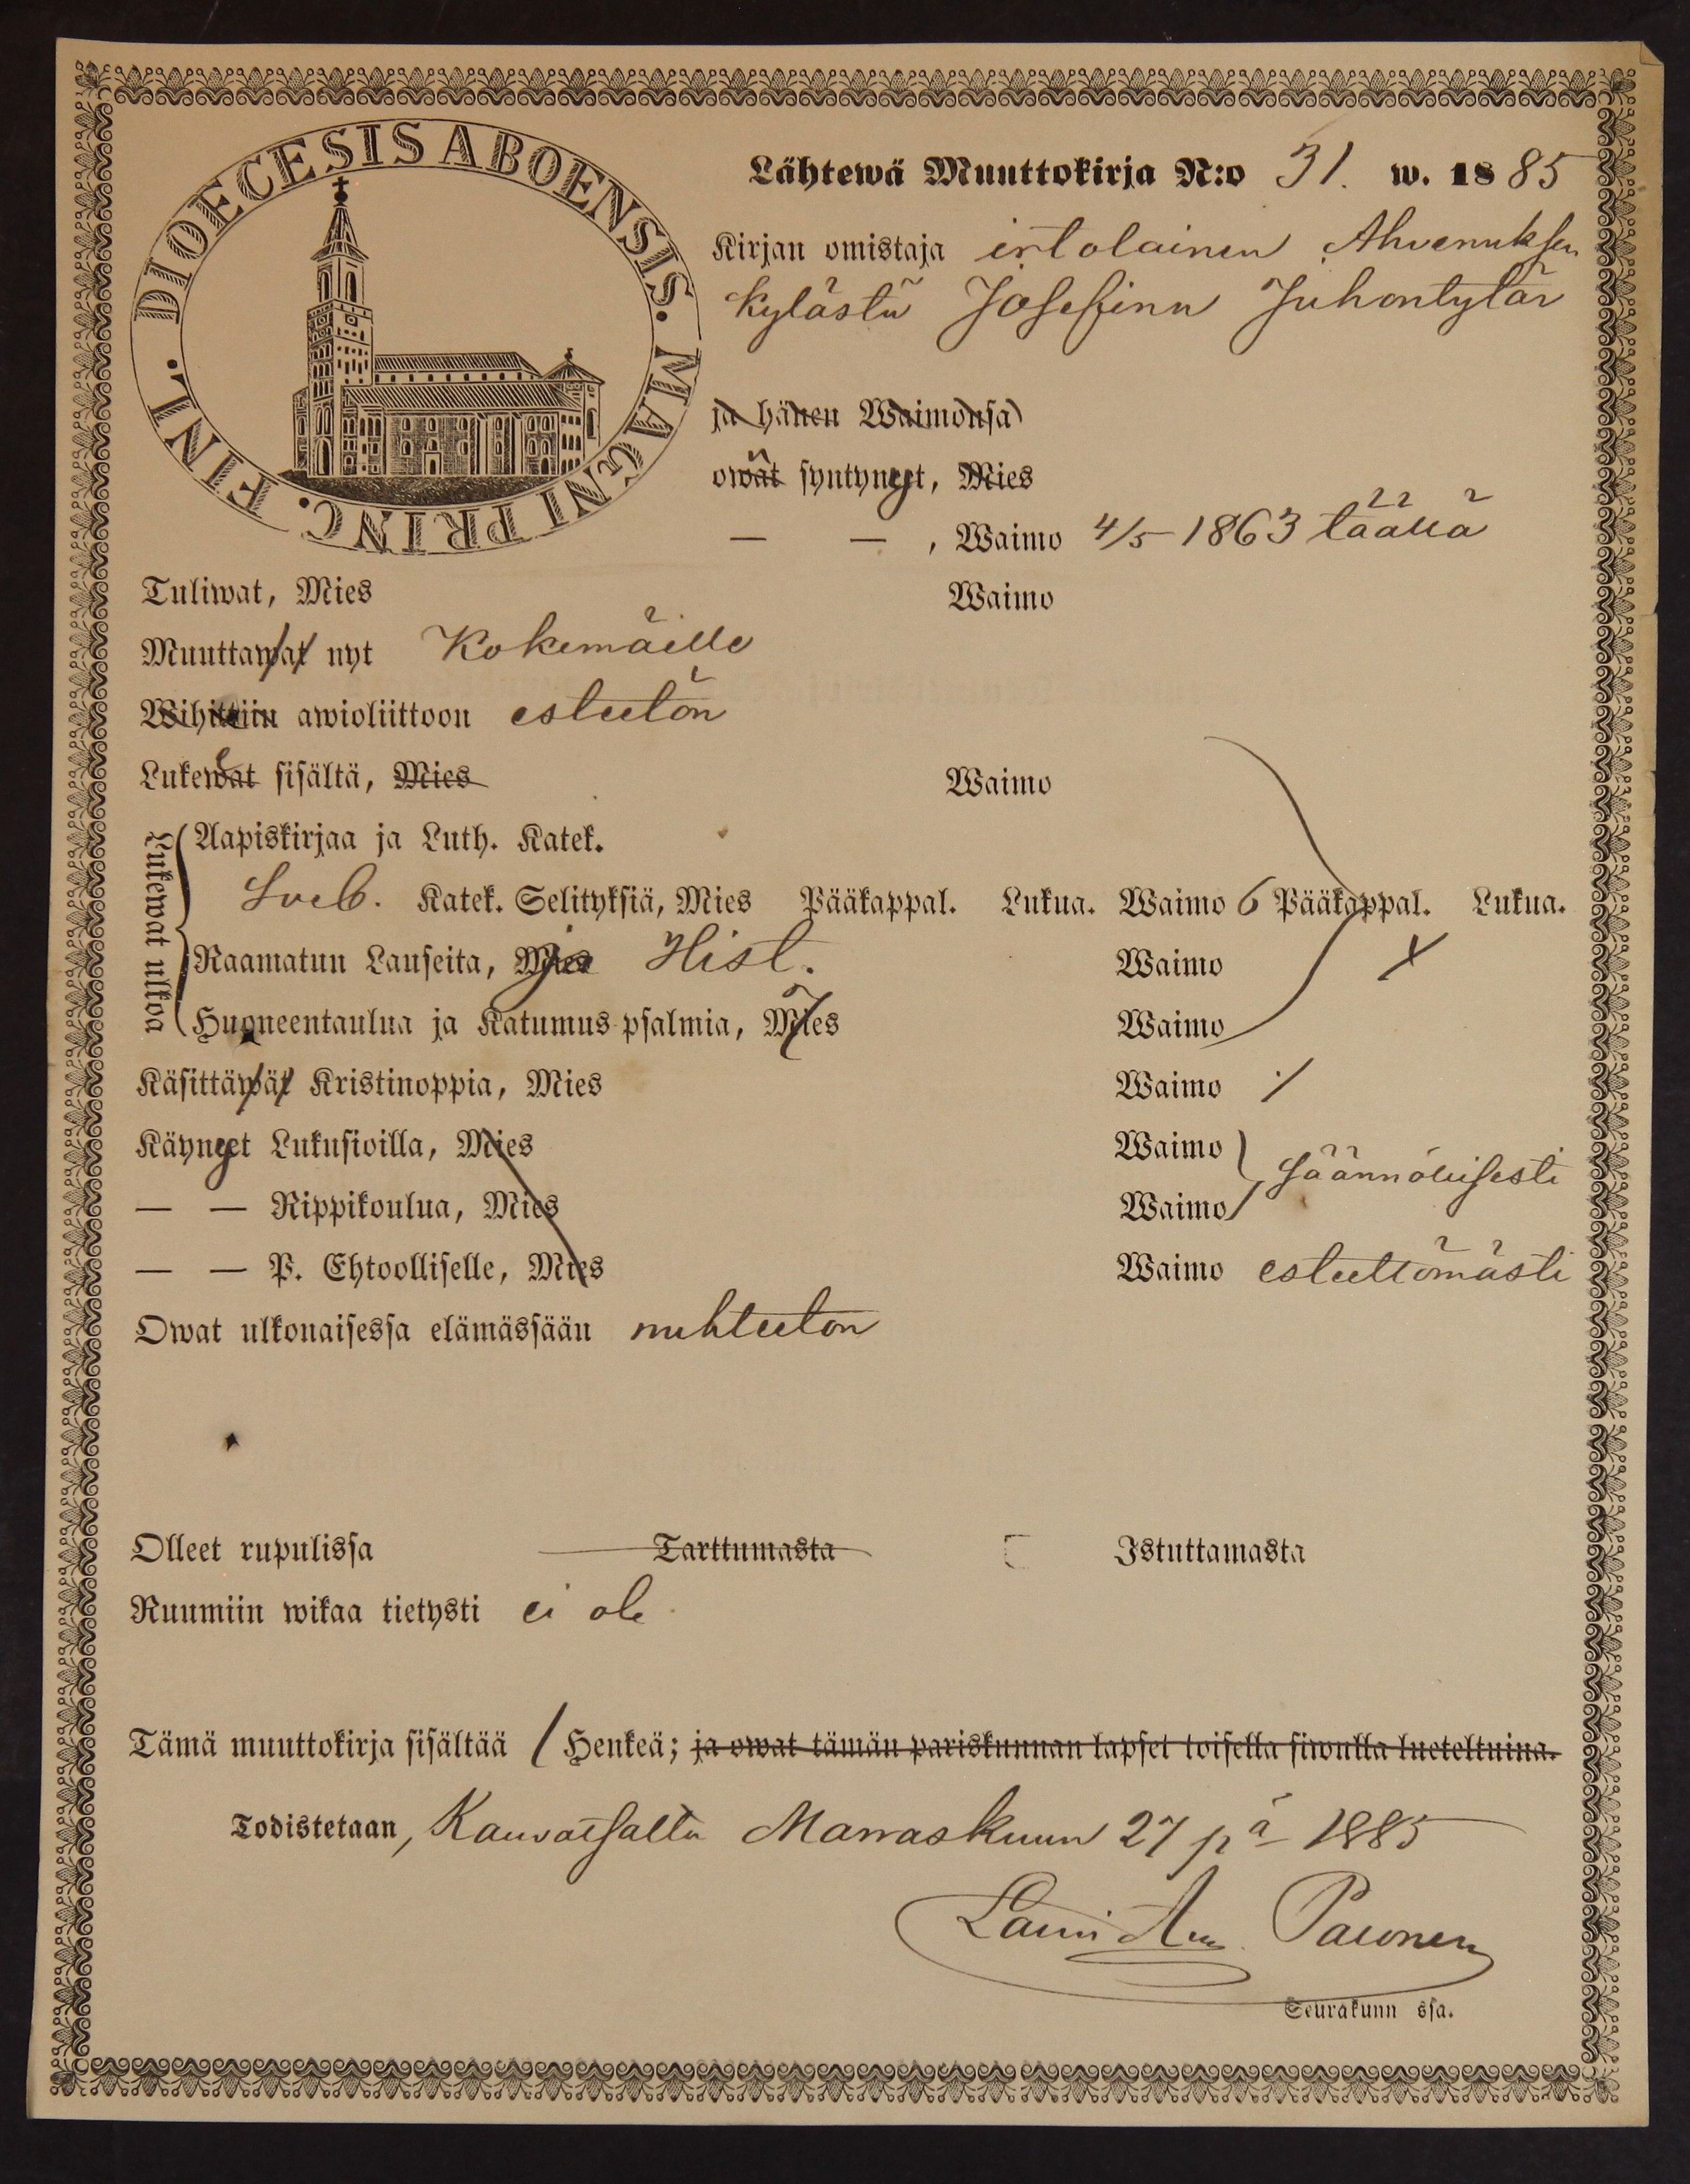 DIOECESIS ABOENSIS. MAGNI PRINC. FINL.
Lähtewä Muuttokirja N:o 31. w. 1885
Kirjan omistaja irtolainen Ahvenuksen
kylästä Josefina Juhontytär
ja hänen Waimonsa
owat syntyneet, Mies
— — , Waimo 4/5 1863 täällä
Tuliwat, Mies Waimo
Muuttawat nyt Kokemäelle
Wihittiin awioliittoon esteetön
Lukewat sisältä, Mies Waimo
Lukewat ulkoa
Aapiskirjaa ja Luth. Katek.
Sveb. Katek. Selityksiä, Mies Pääkappal. Lukua. Waimo 6 Pääkappal. Lukua.
Raamatun Lauseita, Mies ja Hist. Waimo x
Huoneentaulua ja Katumus-psalmia, Mies 7 Waimo
Käsittäwät Kristinoppia, Mies Waimo /
Käyneet Lukusioilla, Mies Waimo säännöllisesti
— — Rippikoulua, Mies Waimo
— — P. Ehtoolliselle, Mies Waimo esteettömästi
Owat ulkonaisessa elämässään nuhteeton
Olleet rupulissa Tarttumasta Istuttamasta
Ruumiin wikaa tietysti ei ole
Tämä muuttokirja sisältää 1 Henkeä; ja owat tämän pariskunnan lapset toisella siwulla lueteltuina.
Todistetaan, Kauvatsalla Marraskuun 27 pä 1885
Lauri Paronen
Seurakunn ssa.